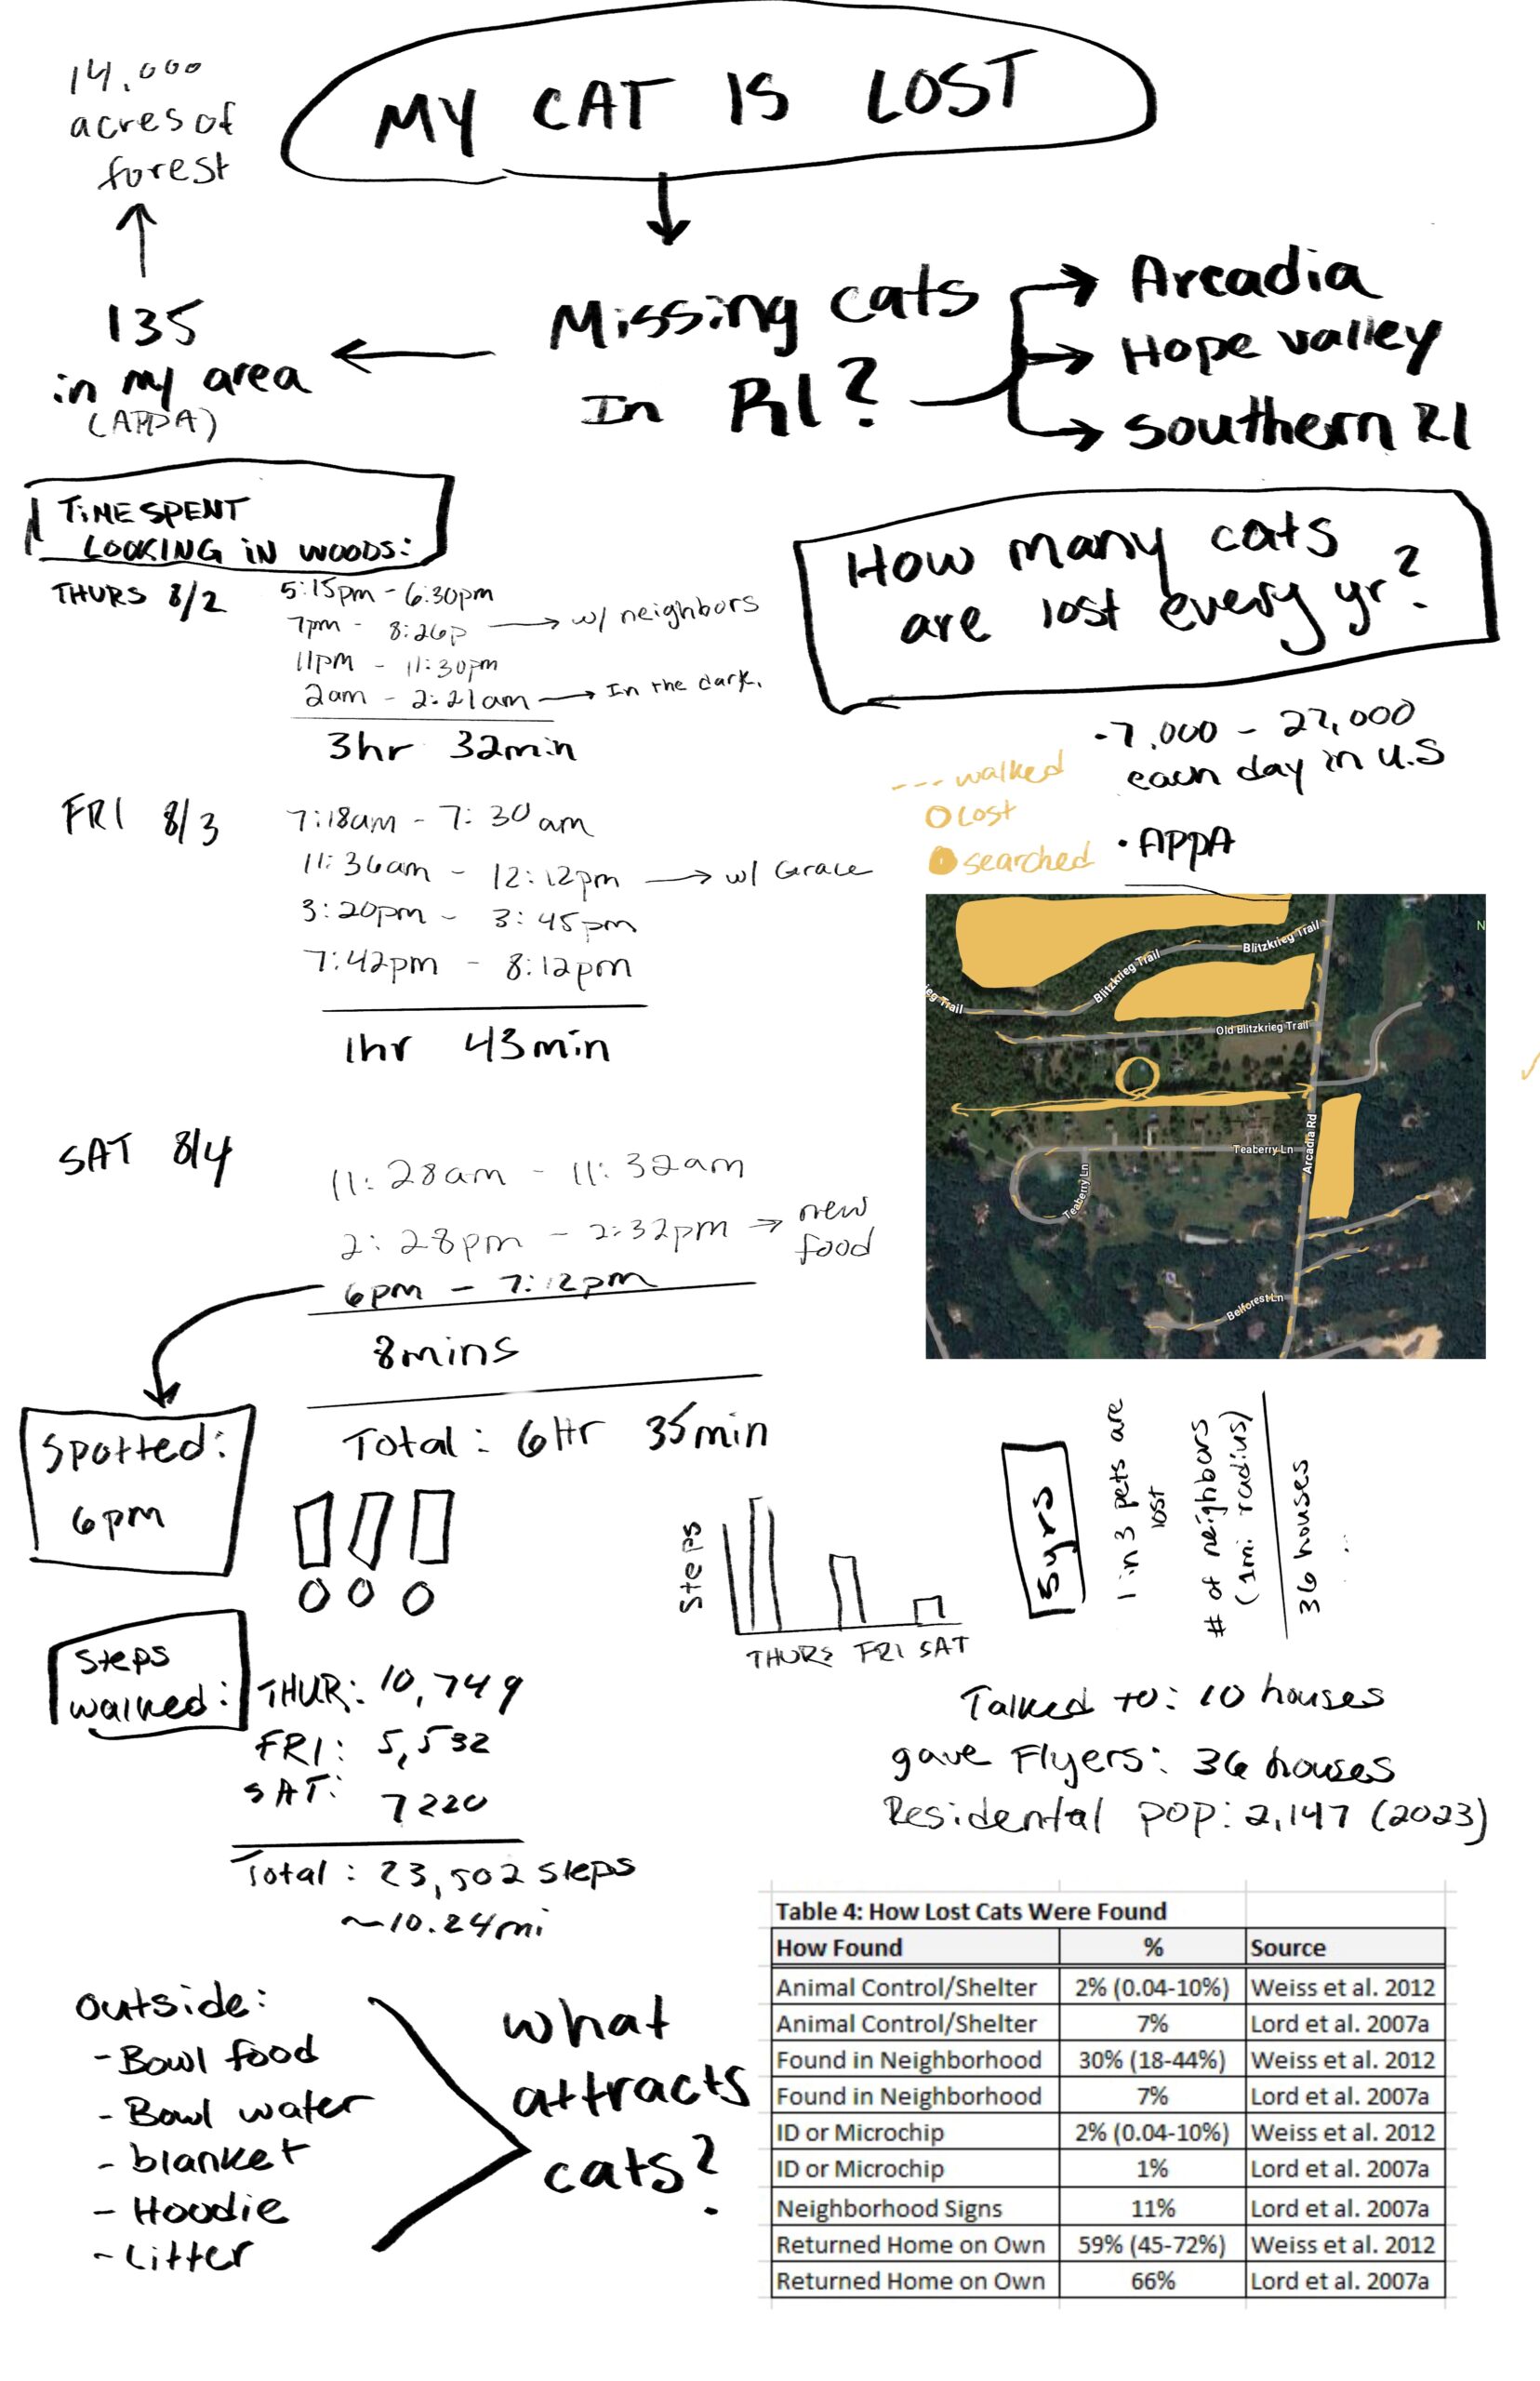 14,000
acres of
forest
MY CAT IS LOST
Missing cats
In RI?
Arcadia
Hope valley
southern RI
135
in my area
(APPA)
TIME SPENT
LOOKING IN WOODS:
THURS 8/2
5:15pm - 6:30pm
7pm - 8:26p → w/ neighbors
11pm - 11:30pm
2am - 2:21am → In the dark.
3hr 32min
FRI 8/3
7:18am - 7:30am
11:36am - 12:12pm → w/ Grace
3:20pm - 3:45pm
7:42pm - 8:12pm
1hr 43min
SAT 8/4
11:28am - 11:32am
2:28pm - 2:32pm → new
food
6pm - 7:12pm
8mins
Total: 6Hr 35min
Spotted:
6pm
How many cats
are lost every yr?
-7,000 - 27,000
each day in U.S
• APPA
--- walked
Lost
searched
N
Blitzkrieg Trail
Blitzkrieg Trail
ieg Trail
Old Blitzkrieg Trail
Arcadia Rd
Teaberry Ln
Teaberry Ln
Belforest Ln
Steps
THURS FRI SAT
5yrs
1 in 3 pets are
lost
# of neighbors
(1mi. radius)
36 houses
...
Steps
walked:
THUR: 10,749
FRI: 5,532
SAT: 7220
Total: 23,502 steps
~10.24mi
Talked to: 10 houses
gave Flyers: 36 houses
Residental pop: 2,147 (2023)
outside:
- Bowl food
- Bowl water
- blanket
- Hoodie
- Litter
what
attracts
cats?
Table 4: How Lost Cats Were Found
How Found % Source
Animal Control/Shelter 2% (0.04-10%) Weiss et al. 2012
Animal Control/Shelter 7% Lord et al. 2007a
Found in Neighborhood 30% (18-44%) Weiss et al. 2012
Found in Neighborhood 7% Lord et al. 2007a
ID or Microchip 2% (0.04-10%) Weiss et al. 2012
ID or Microchip 1% Lord et al. 2007a
Neighborhood Signs 11% Lord et al. 2007a
Returned Home on Own 59% (45-72%) Weiss et al. 2012
Returned Home on Own 66% Lord et al. 2007a